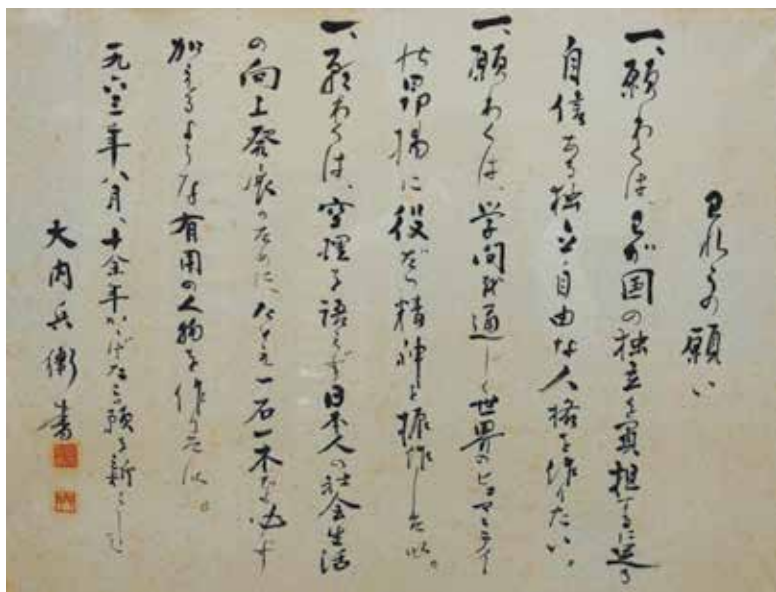 われらの願い
一、願わくは、わが国の独立を負担するに足る
自信ある独立自由な人格を作りたい。
一、願わくは、学問を通じて世界のヒューマニティ
の昂揚に役だつ精神を振作したい。
一、願わくは、空理を語らず日本人の社会生活
の向上発展のために、たとえ一石一木でも必ず
加えるような有用の人物を作りたい。
一九六三年八月、十余年かゝげた三願を新に
大内兵衛書